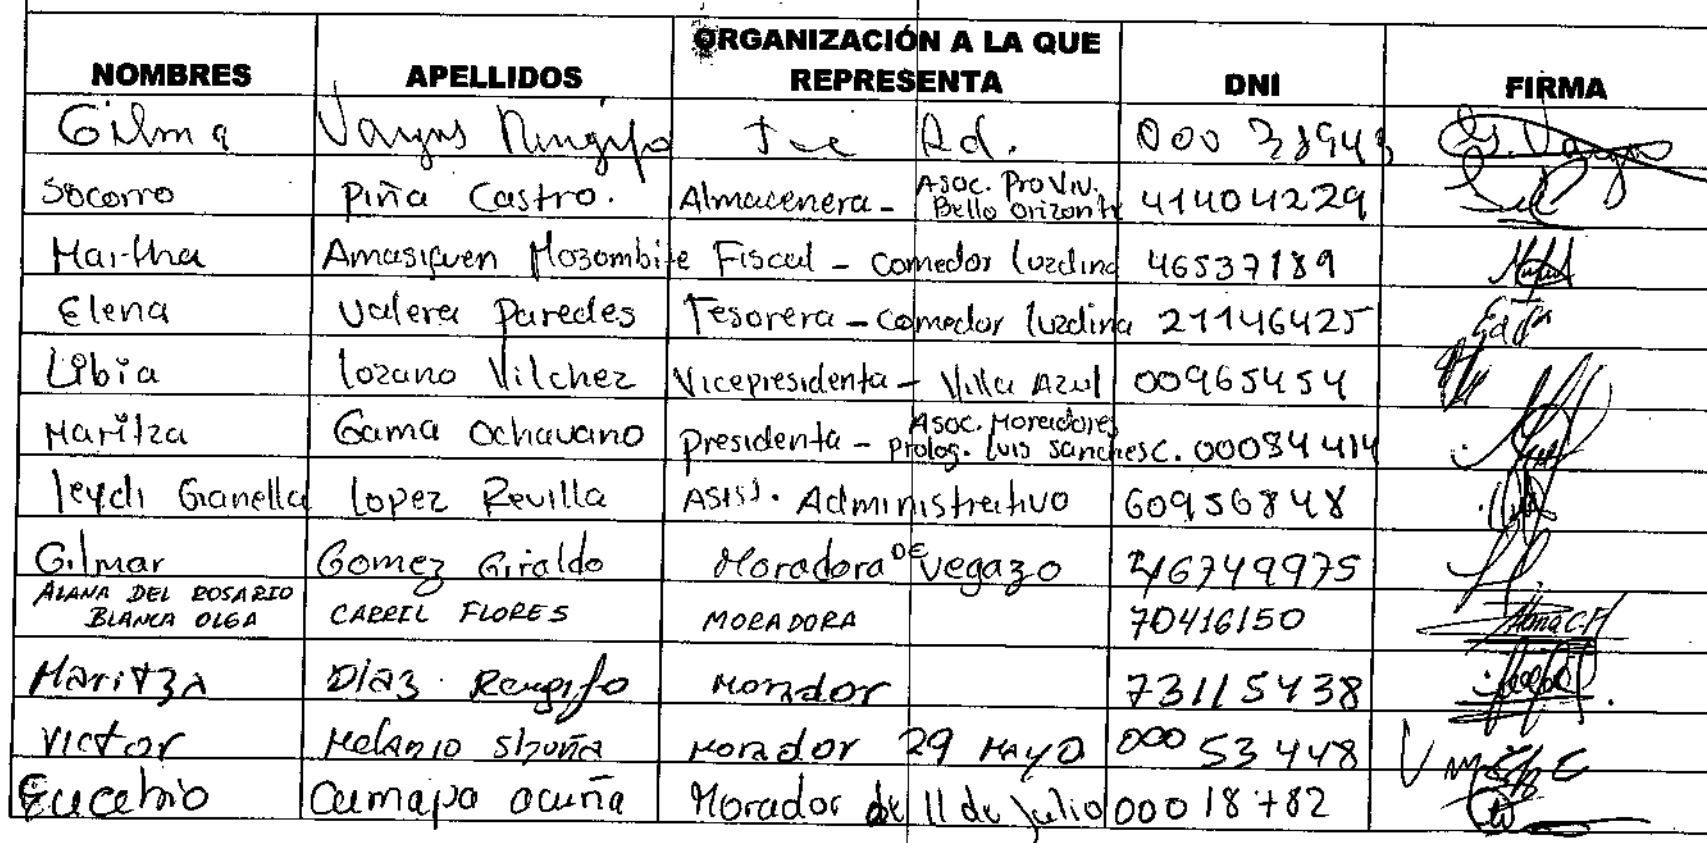 NOMBRES APELLIDOS ORGANIZACIÓN A LA QUE REPRESENTA DNI FIRMA
Gilma Vargas Rengifo 000 G. Vargas
Socorro Piña Castro. Almacenera - Asoc. ProViv. Bello Orizonte 41404229
Martha Amasifuen Mozombite Fiscal - Comedor Luzdina 46537189
Elena Valera Paredes Tesorera - Comedor Luzdina 21146425
Libia Lozano Vilchez Vicepresidenta - Villa Azul 00965454
Maritza Gama Ochavano Presidenta - Asoc. Moradores Prolog. Luis Sanches C. 00084414
Leydi Gianella Lopez Revilla Asist. Administrativo 60956848
Gilmar Gomez Giraldo Moradora DE Vegazo 46749975
ALANA DEL ROSARIO BLANCA OLGA CARRIL FLORES MORADORA 70416150 Alana C.F
Maritza Diaz Rengifo Morador 73115438
Victor Melanio Morador 29 Mayo 00053448
Eucebio Camapa Acuña Morador de 11 de Julio 00018782